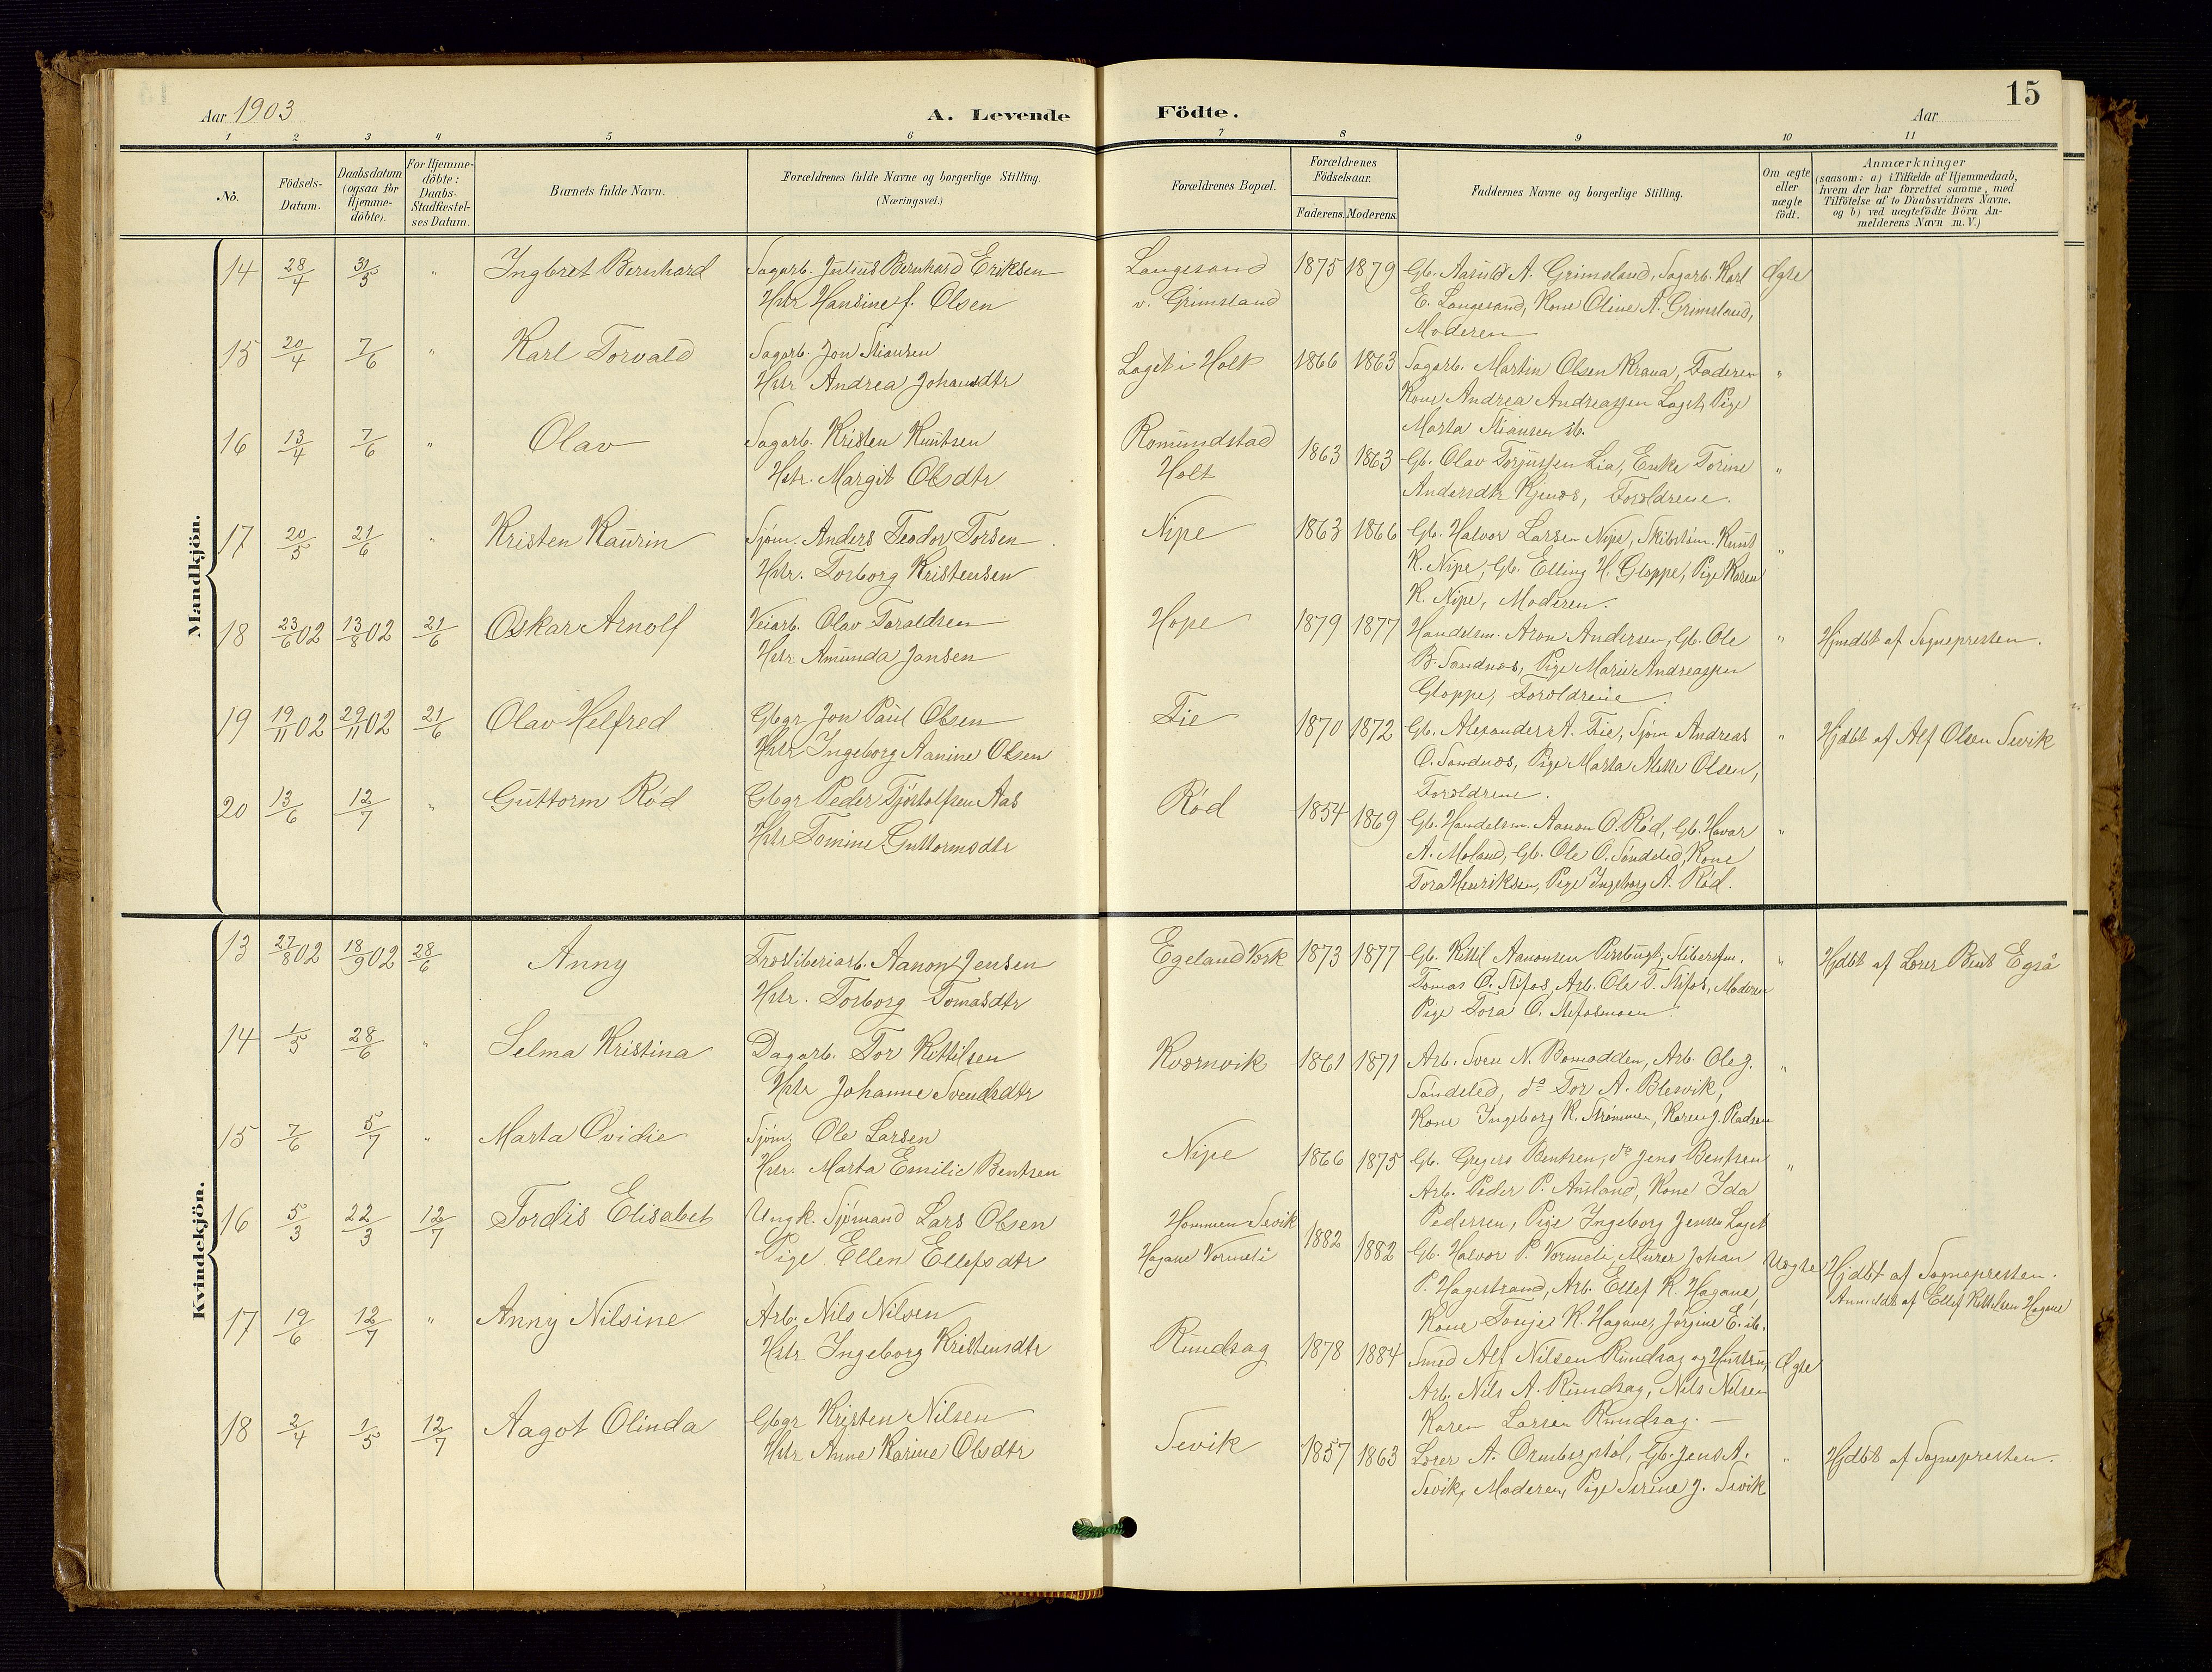 15
Aar 1903
A. Levende Födte.
Aar
1 2 3 4 5 6 7 8 9 10 11
No.
Födsels-Datum.
Daabsdatum (ogsaa for Hjemme-döbte).
For Hjemme-döbte: Daabs-Stadfæstel-ses Datum.
Barnets fulde Navn.
Forældrenes fulde Navne og borgerlige Stilling.
(Næringsvei.)
Forældrenes Bopæl.
Forældrenes Födselsaar.
Faderens. Moderens.
Faddernes Navne og borgerlige Stilling.
Om ægte eller uægte födt.
Anmærkninger
(saasom: a) i Tilfælde af Hjemmedaab,
hvem der har forrettet samme, med
Tilföielse af to Daabsvidners Navne,
og b) ved uægtefödte Börn An-
melderens Navn m. V.)
Mandkjön.
14 28/4 31/5 " Ingbret Bernhard Sagarb. Julius Bernhard Eriksen Langesand 1875 1879 Gb. A. Grimsland, Sagarb. Karl Ægte
Hstr Hansine f. Olsen v. Grimsland E. Langesand, Kone Oline A. Grimsland,
Moderen
15 20/4 7/6 " Karl Torvald Sagarb. Jon Stiansen Laget i Holt 1866 1863 Sagarb. Martin Olsen Krana, Faderen "
Hstr Andrea Johansdtr Kone Andrea Andreassen Laget, Pige
Marta Stiansen ib.
16 13/4 7/6 " Olav Sagarb. Kristen Knutsen Romundstad 1863 1863 Gb. Olav Torjussen Lia, Enke Torine "
Hstr. Margit Olsdtr Holt Andersdtr Kjenos, Forældrene.
17 20/5 21/6 " Kristen Kaurin Sjøm. Anders Teodor Torsen Nipe 1863 1866 Gb. Halvor Larsen Nipe, Knut "
Hstr. Torborg Kristensen K. Nipe, Gb. Elling H. Gloppe, Pige Karen
K. Nipe, Moderen.
18 23/6 02 13/8 02 21/6 Oskar Arnolf Veiarb. Olav Taraldsen Hope 1879 1877 Handelsm. Aron Andersen, Gb. Ole " Hjmdbt af Sognepresten.
Hstr Amunda Jansen B. Sandnæs, Pige Marie Andreassen
Gloppe, Forældrene
19 19/11 02 29/11 02 21/6 Olav Helfred Gbgr Jon Paul Olsen Fie 1870 1872 Gb. Alexander A. Fie, Sjøm Andreas " Hjdbt af Alf Olsen Sevik
Hstr Ingeborg Aanine Olsen O. Sandnæs, Pige Marta Olsen,
Forældrene.
20 13/6 12/7 " Guttorm Rød Gbgr Peder Tjøstolfsen Aas Rød 1854 1869 Gb. Handelsm. Aanon O. Rød, Gb. Havor "
Hstr Tomine Guttormsdtr A. Moland, Gb. Ole O. Søndeled, Kone
Tora Henriksen, Pige Ingeborg A. Rød.
Kvindekjön.
13 27/8 02 18/9 02 28/6 Anny Aanon Jensen Egeland Verk 1873 1877 Gb. Kittil Aanonsen " Hjdbt af Lærer Bent Egrå
Hstr. Torborg Tomasdtr Tomas O. Stifos, Arb. Ole T. Stifos, Moderen
Pige Tora O.
14 1/5 28/6 " Selma Kristina Dagarb. Tor Kittilsen Kværnvik 1861 1871 Arb. Sven N. Bomodden, Arb. Ole J. "
Hstr Johanne Svendsdtr Søndeled, do Tor A. Blesvik,
Kone Ingeborg K. Strømmen, Karen J. Pladsen
15 7/6 5/7 " Marta Ovidie Sjøm. Ole Larsen Nipe 1866 1875 Gb. Gregers Bentsen, do Jens Bentsen "
Hstr. Marta Emilie Bentsen Arb. Peder P. Ausland, Kone Ida
Pedersen, Pige Ingeborg Jensen Laget
16 5/3 22/3 12/7 Tordis Elisabet Ungk. Sjømand Lars Olsen Hommen Sevik 1882 1882 Gb. Halvor P. Vormeli, Murer Johan Uægte Hjdbt af Sognepresten.
Pige Ellen Ellefsdtr Hagane Vormeli P. Hagestrand, Arb. Ellef K. Hagane, Anmeldt af Ellef Kittelsen Hagane
Kone Tonje K. Hagane, Jørgine E. ib.
17 19/6 12/7 " Anny Nilsine Arb. Nils Nilsen Rundsag 1878 1884 Smed Alf Nilsen Rundsag og Hustru, Ægte
Hstr Ingeborg Kristensdtr Arb. Nils A. Rundsag, Nils Nilsen
Karen Larsen Rundsag. —
18 2/4 1/5 12/7 Aagot Olinda Gbgr Kristen Nilsen Sevik 1857 1863 Lærer A. Ormberstøl, Gb. Jens A. " Hjdbt af Sognepresten.
Hstr Anne Karine Olsdtr Sevik, Moderen, Pige Serine J. Sevik